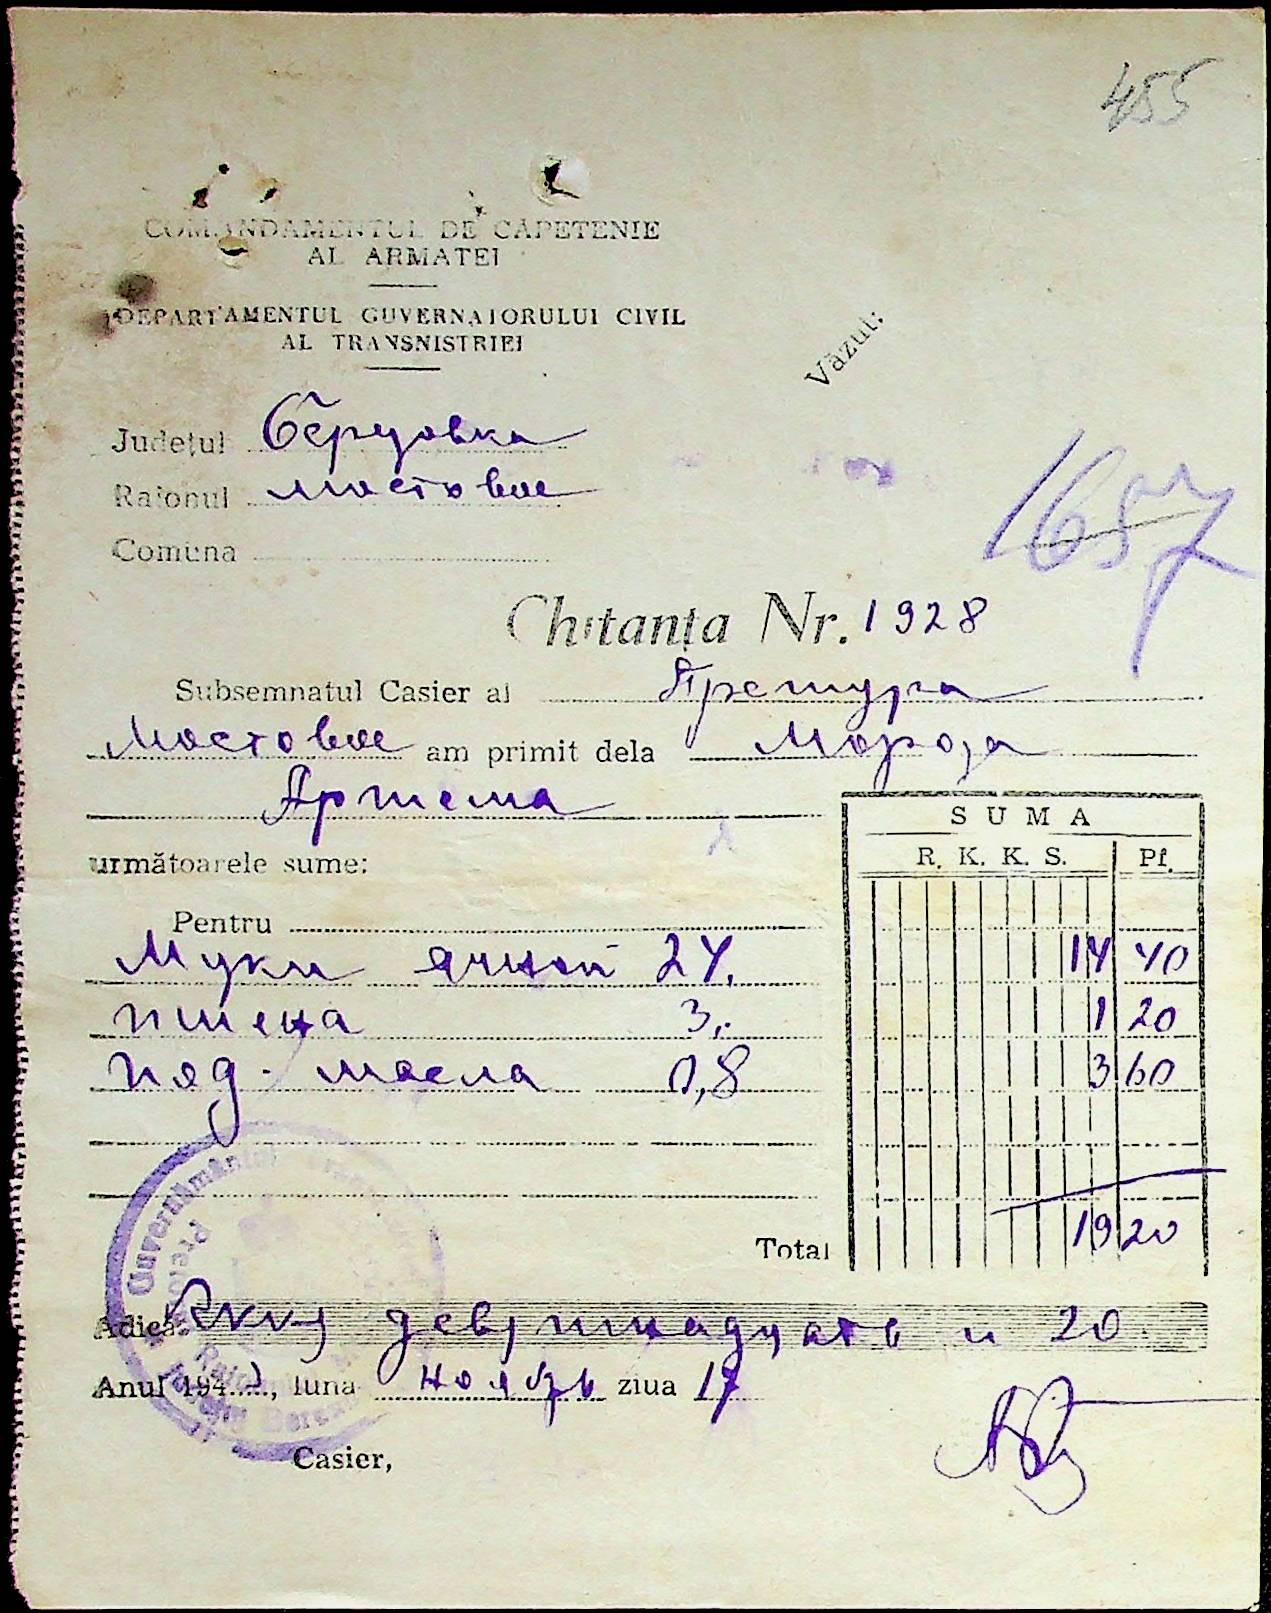 455
COMANDAMENTUL DE CĂPETENIE
AL ARMATEI
DEPARTAMENTUL GUVERNATORULUI CIVIL
AL TRANSNISTRIEI
Văzut:
Județul
Raionul Мостовое
Comuna
1657
Chitanța Nr. 1928
Subsemnatul Casier al Претура
Мостовое am primit dela Мороза
Артема
SUMA
următoarele sume:
R. K. K. S. Pf.
Pentru
Муки ячной 24. 14 40
пшена 3,. 1 20
под. масла 0,8 3 60
Total 19 20
Guvernământul
Adică девятнадцать и 20
Anul 194..., luna ноябрь ziua 17
Casier,